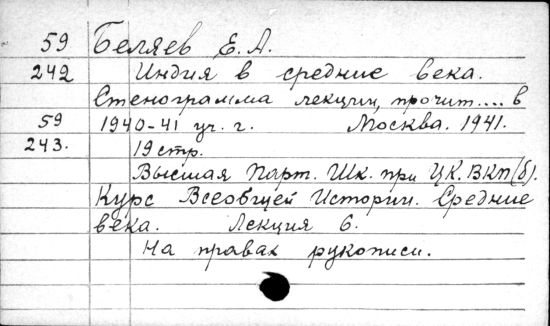 59 Беляев Е. А.
242 Индия в средние века.
Стенограмма лекции, прочит.... в
59 1940-41 уч. г. Москва. 1941.
243. 19 стр.
Высшая Парт. Шк. при ЦК. ВКП(б).
Курс Всеобщей Истории. Средние
века. Лекция 6.
На правах рукописи.